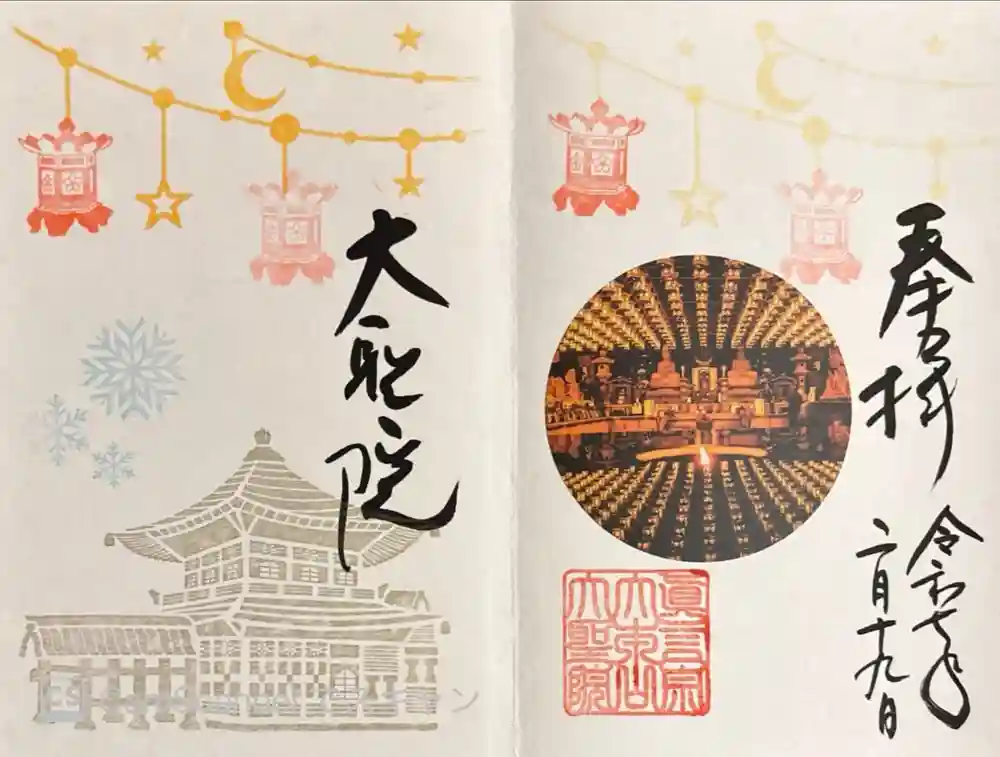 奉拝
令和七年
二月十九日
眞言宗
大本山
大聖院
大聖院